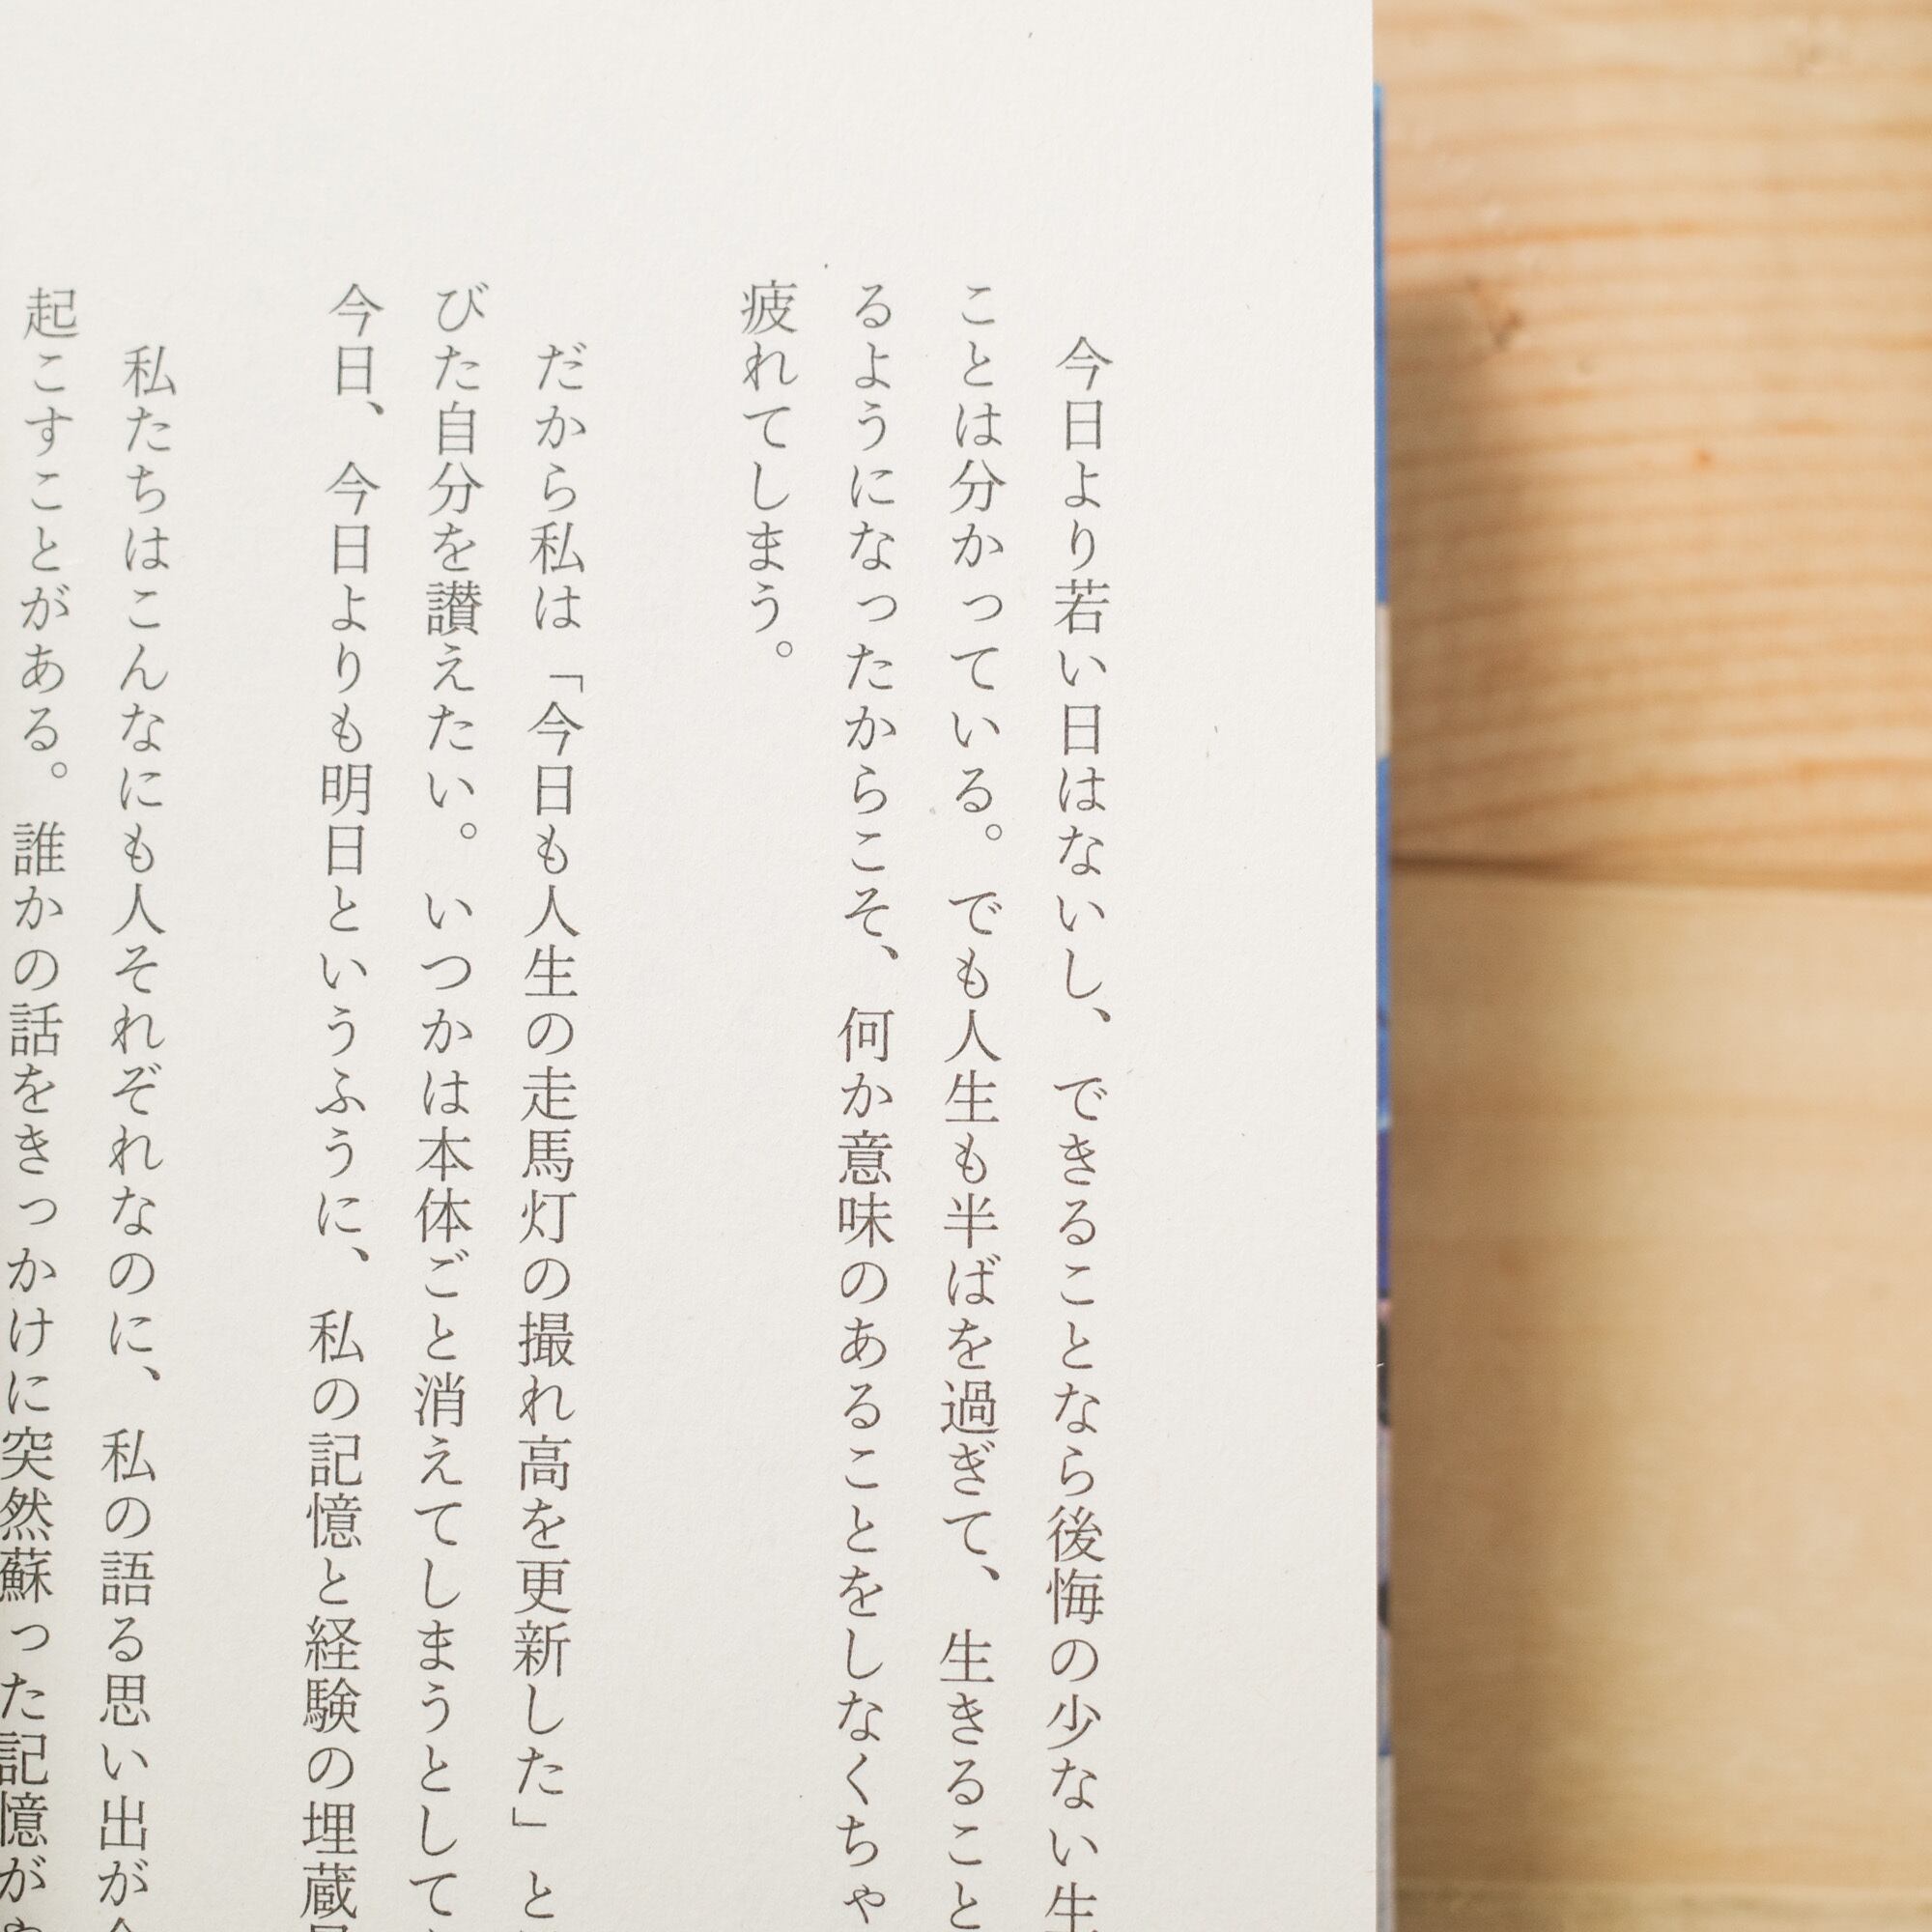 今日より若い日はないし、できることなら後悔の少ない生
ことは分かっている。でも人生も半ばを過ぎて、生きること
るようになったからこそ、何か意味のあることをしなくちゃ
疲れてしまう。
だから私は「今日も人生の走馬灯の撮れ高を更新した」と
びた自分を讃えたい。いつかは本体ごと消えてしまうとして
今日、今日よりも明日というふうに、私の記憶と経験の埋蔵
私たちはこんなにも人それぞれなのに、私の語る思い出が
起こすことがある。誰かの話をきっかけに突然蘇った記憶が